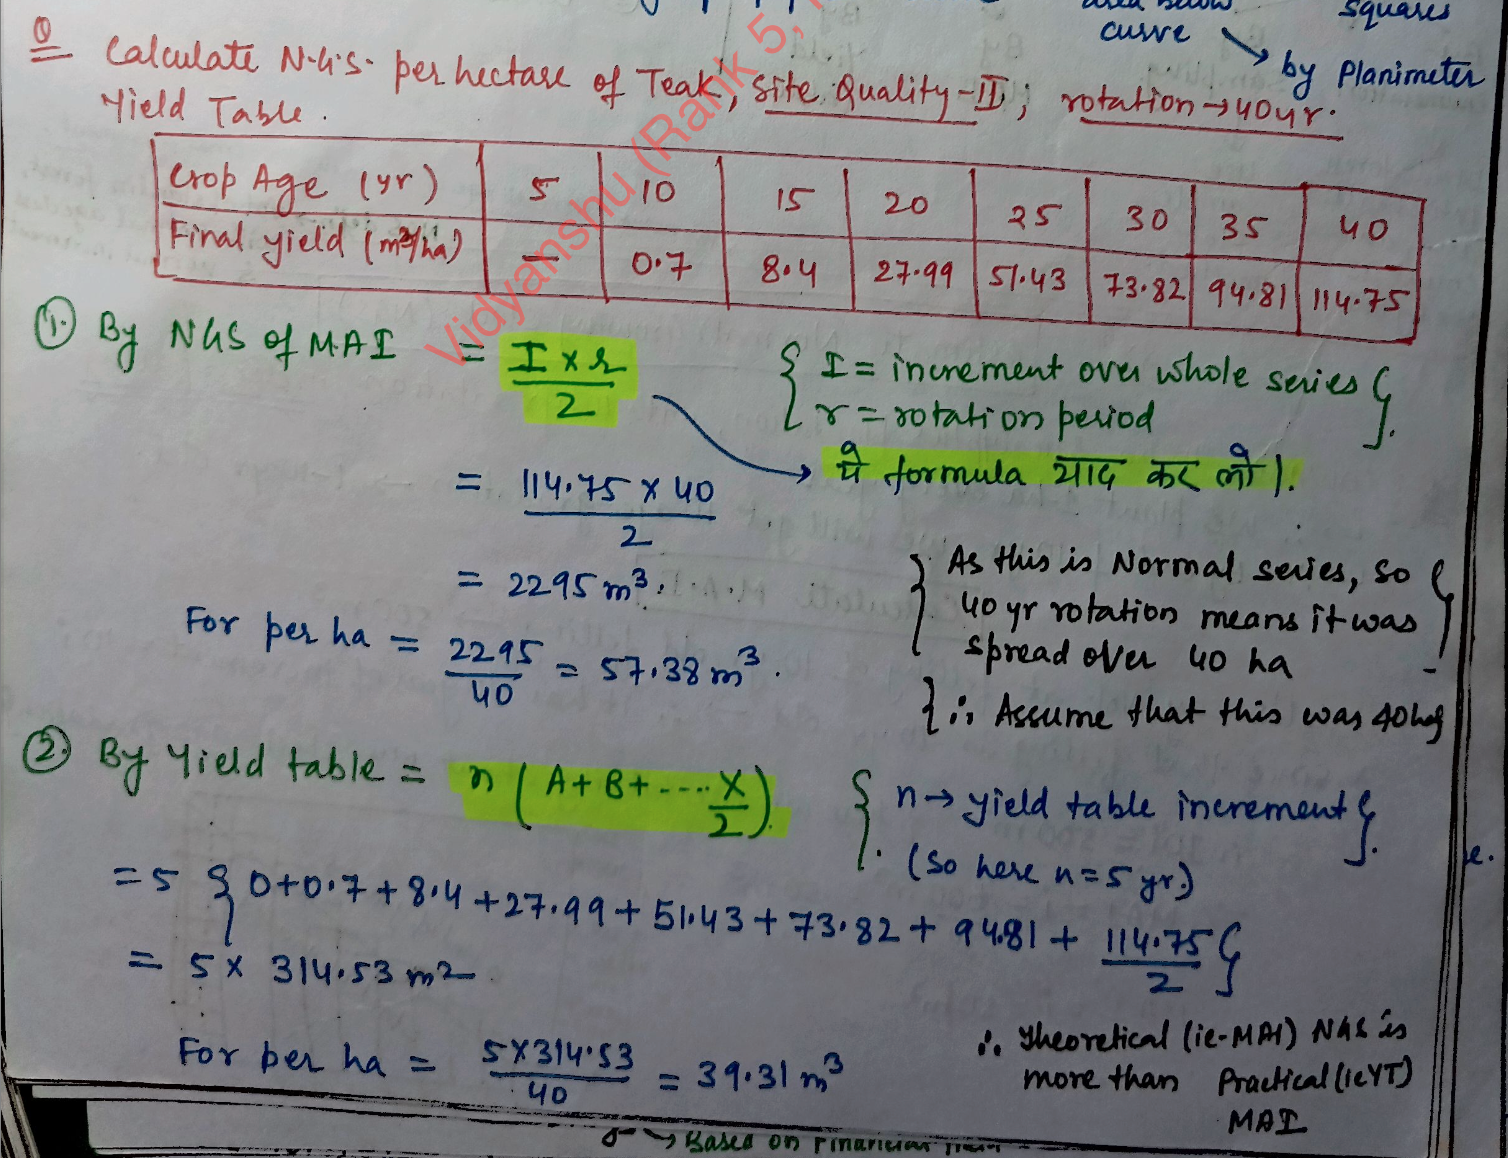 curve
squares
by Planimeter
Q Calculate N.G.S. per hectare of Teak, Site Quality-II; rotation → 40 yr.
Yield Table.
Crop Age (yr) 5 10 15 20 25 30 35 40
Final yield (m³/ha) — 0.7 8.4 27.99 51.43 73.82 94.81 114.75
Vidyanshu (Rank 5,
① By NGS of MAI = I × r / 2 { I = increment over whole series
r = rotation period }.
ये formula याद कर लो।
= 114.75 × 40 / 2
= 2295 m³.
For per ha = 2295 / 40 = 57.38 m³.
{ As this is Normal series, so
40 yr rotation means it was
spread over 40 ha }
{ ∴ Assume that this was 40 ha }
② By Yield table = n ( A + B + .... X / 2 ) { n → yield table increment
(So here n = 5 yr.) }.
= 5 { 0 + 0.7 + 8.4 + 27.99 + 51.43 + 73.82 + 94.81 + 114.75 / 2 }
= 5 × 314.53 m2
For per ha = 5 × 314.53 / 40 = 39.31 m³
∴ Theoretical (ie-MAI) NGS is
more than Practical (ie YT)
MAI
→ Based on Financial